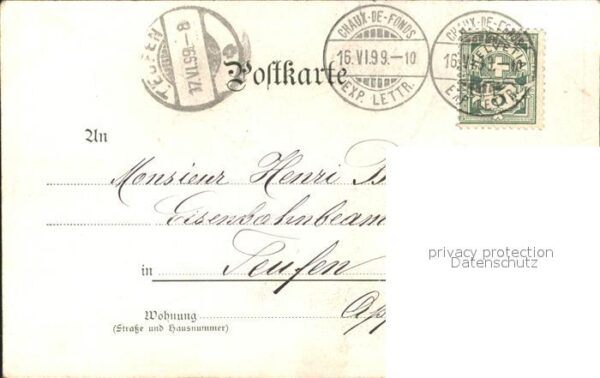 TEUFEN
17.VI.99.-8
CHAUX-DE-FONDS
16.VI.99.-10
EXP. LETTR.
CHAUX-DE-FONDS
16.VI
EXP. LETTR.
HELVETIA
5
Postkarte
An
Monsieur Henri
Eisenbahnbeam
in Teufen
App
Wohnung
(Straße und Hausnummer)
privacy protection
Datenschutz